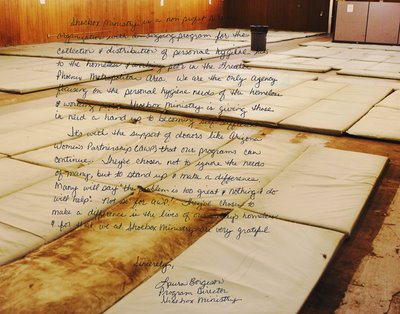 Shoebox Ministry is a non profit
organization with an ongoing program for the
collection & distribution of personal hygiene
to the homeless & working poor in the Greater
Phoenix Metropolitan Area. We are the only agency
focusing on the personal hygiene needs of the homeless
& working poor. Shoebox Ministry is giving those
in need a hand up to becoming
It's with the support of donors like Arizona
Women's Partnership (AWP) that our programs can
continue. They've chosen not to ignore the needs
of many, but to stand up & make a difference.
Many will say "the problem is too great & nothing I do
will help". Not so for AWP! They've chosen to
make a difference in the lives of
& for that we at Shoebox Ministry are very grateful.
Sincerely,
Laura
Program Director
Shoebox Ministry